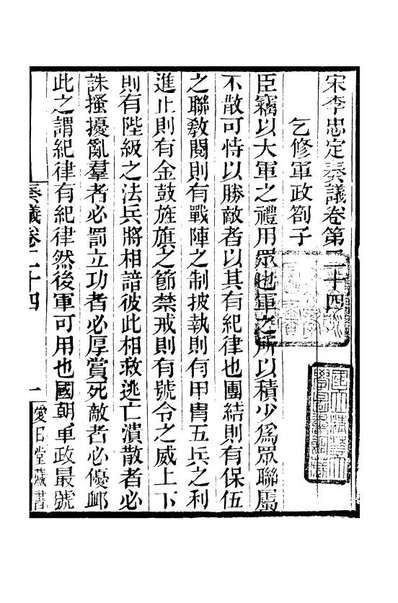 宋李忠定奏議卷第二十四
乞修軍政劄子
臣竊以大軍之禮用眾也軍之所以積少為眾聯屬
不散可恃以勝敵者以其有紀律也團結則有保伍
之聯教閱則有戰陣之制披執則有甲冑五兵之利
進止則有金鼓旌旗之節禁戒則有號令之威上下
則有陛級之法兵將相諳彼此相救逃亡潰散者必
誅搔擾亂羣者必罰立功者必厚賞死敵者必優卹
此之謂紀律有紀律然後軍可用也國朝軍政最號
奏議卷二十四
一
愛日堂藏書